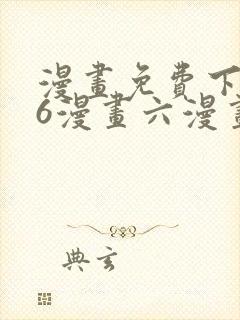 漫畫免費下
6漫畫六漫畫
典玄